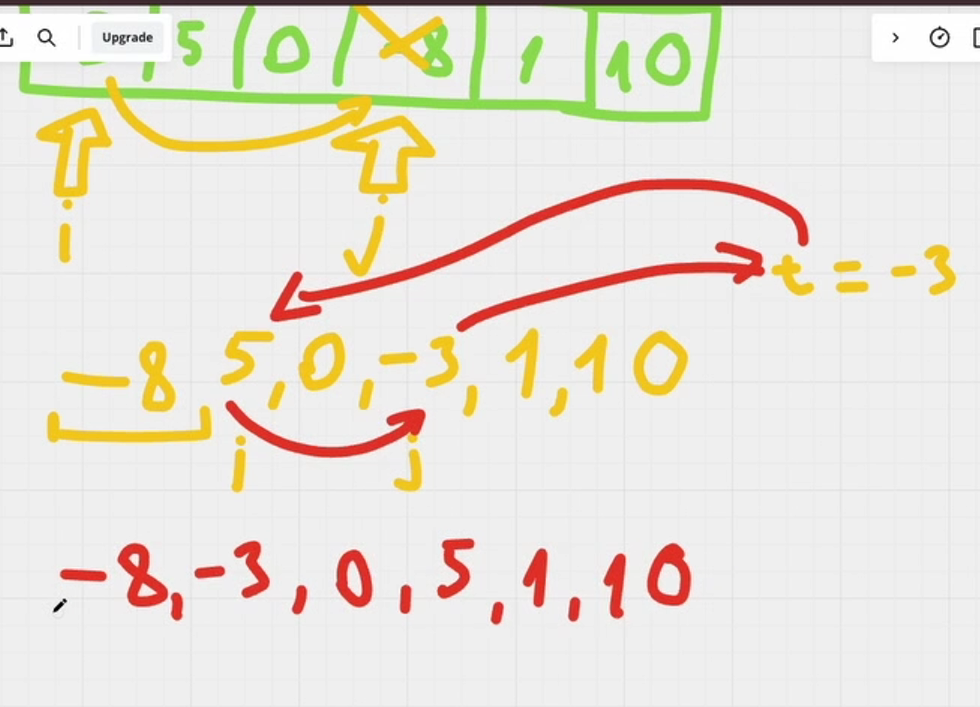 Upgrade
5 0 8 1 10
i j
t = -3
-8 5, 0, -3, 1, 10
i j
-8, -3, 0, 5, 1, 10